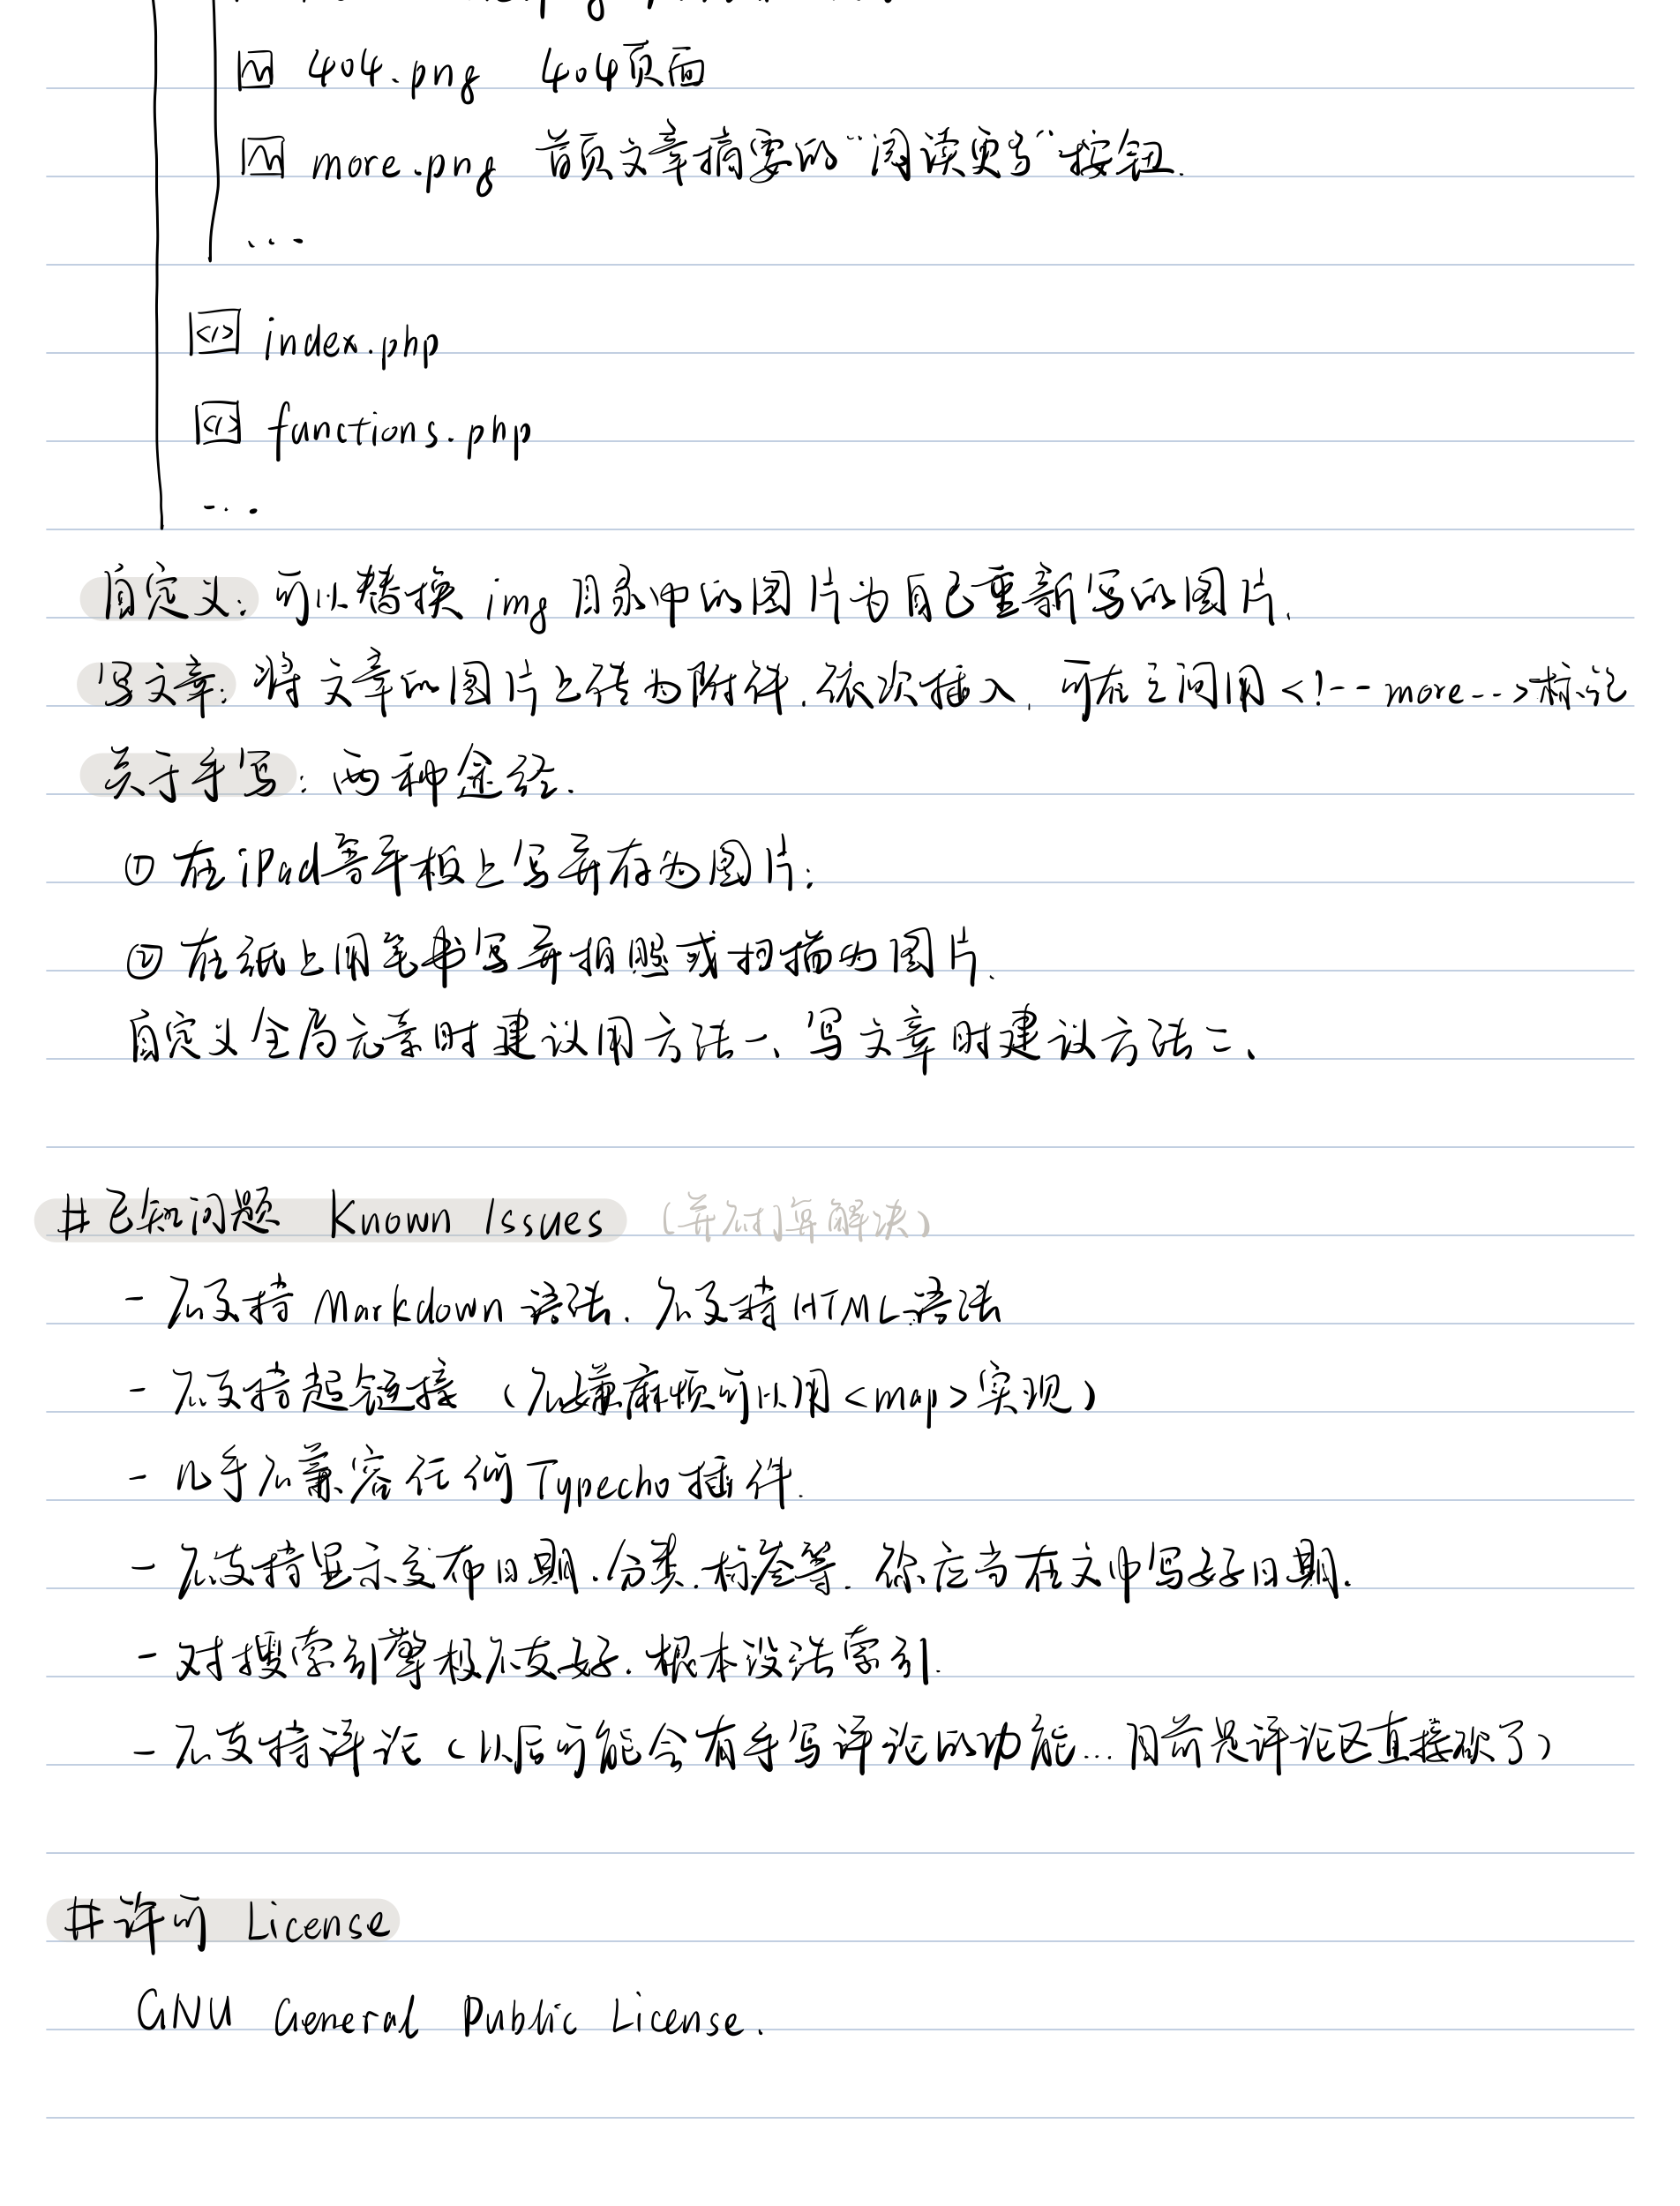 404.png 404页面
more.png 首页文章摘要的“阅读更多”按钮.
...
</> index.php
</> functions.php
...
自定义: 可以替换 img 目录中的图片为自己重新写的图片.
写文章: 将文章的图片上传为附件.依次插入, 可在之间用<!--more-->标记
关于手写: 两种途径.
① 在iPad等平板上写并存为图片;
② 在纸上用笔书写并拍照或扫描为图片.
自定义全局元素时建议用方法一、写文章时建议方法二、
#已知问题 Known Issues (并不打算解决)
- 不支持 Markdown 语法. 不支持HTML语法
- 不支持超链接 (不嫌麻烦可以用<map>实现)
- 几乎不兼容任何Typecho插件.
- 不支持显示发布日期.分类.标签等. 你应当在文中写好日期.
- 对搜索引擎极不友好.根本没法索引.
- 不支持评论 (以后可能会有手写评论的功能...目前是评论区直接砍了)
#许可 License
GNU General Public License.